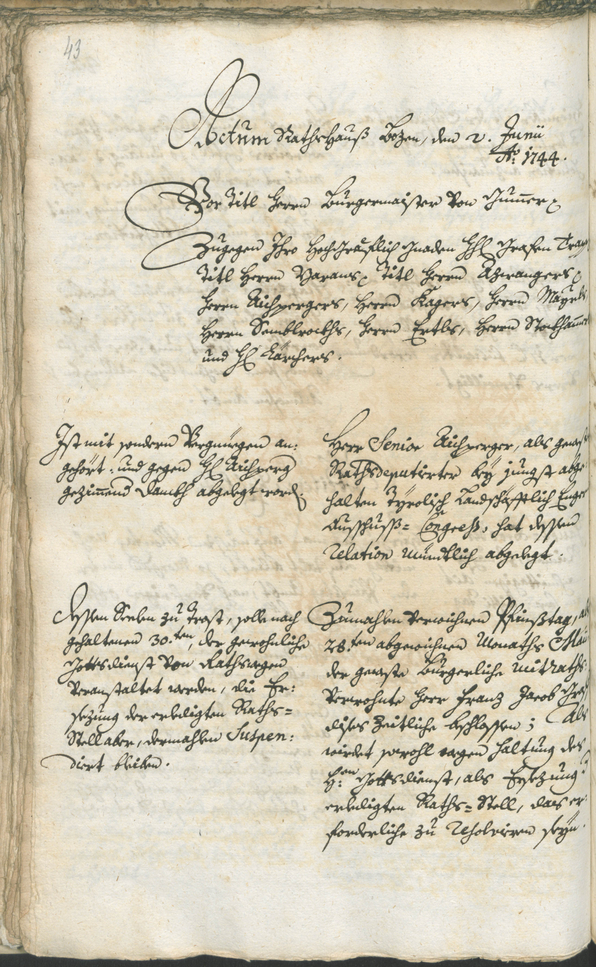 43
Actum Rathshauß Bozen, den 2. Junii
Aõ. 1744.
Vor Titl Herrn Burgermaister von Gumer
Zugegen Ihro Hochgräfflich Gnaden Grafen
Titl Herrn Titl Herrn Azwangers
Herrn Aichpergers, Herrn Kagers, Herrn
Herrn Herrn Ertls, Herrn
und H Kärchers.
Ist mit sondern Vergniegen an:
gehört: und gegen H Aichperg
gezimmend Danckh abgelegt word
Herr Senior Aichperger, als
Rathsdeputirter bey jungst abge
halten Tyrolisch Landschafftlich Enge
Ausschuß= Congreß, hat dessen
Relation mündlich abgelegt:
dessen Seelen zu Trost, solle nach
gehaltenen 30.ten, der gewohnliche
Gottsdienst von Rathswegen
veranstaltet werden, die Er:
sezung der erledigten Raths=
Stell aber, dermahlen Suspen:
dirt bleiben.
Zumahlen verwichnen Pfinstag,
28.ten abgewichnen Monaths
der geweste Burgerliche mitRaths
Verwohnte Herr Franz Jacob
dises Zeitliche beschlossen; Als
wirdet sowohl wegen Haltung des
H: Gottsdienst, als Ersezung
erledigten Raths=Stell, das er
forderliche zu Resolviren seyn.